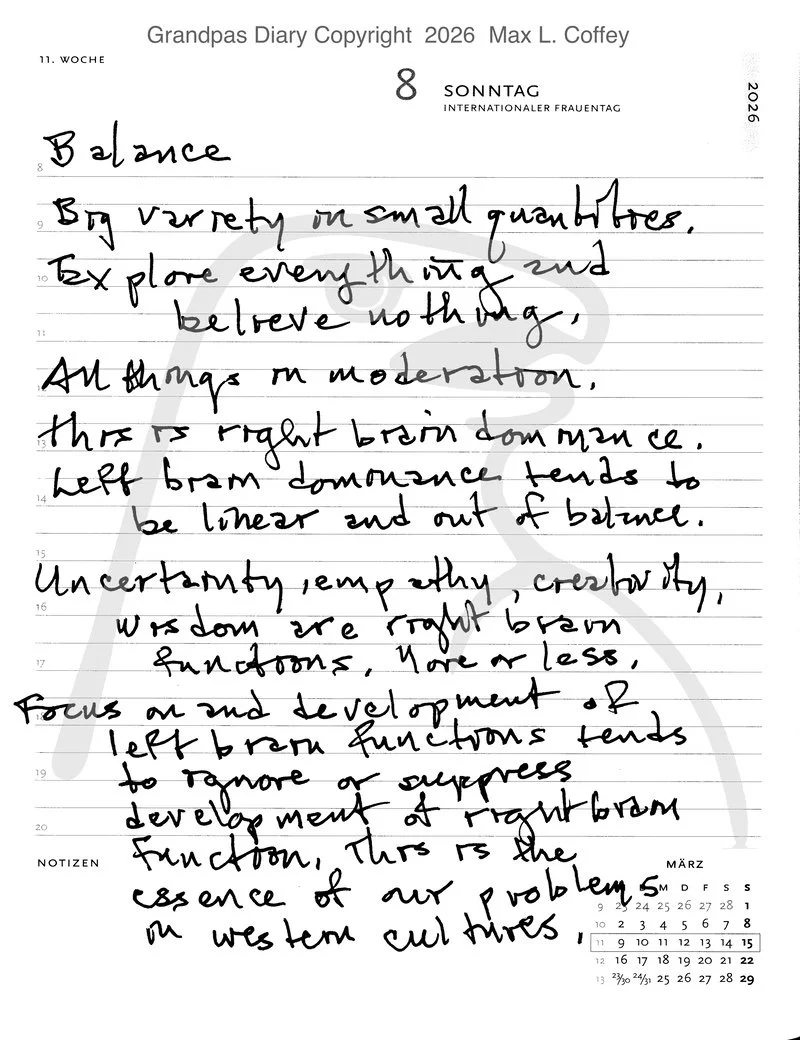 Grandpas Diary Copyright 2026 Max L. Coffey
11. WOCHE
8 SONNTAG
INTERNATIONALER FRAUENTAG
2026
Balance
8
Big variety in small quantities.
9
Explore everything and
10
believe nothing.
11
All things in moderation.
This is right brain dominance.
13
Left brain dominance tends to
14
be linear and out of balance.
15
Uncertainty, empathy, creativity,
16
wisdom are right brain
17
functions, more or less.
Focus on and development of
left brain functions tends
19
to ignore or suppress
development of right brain
20
function. This is the
NOTIZEN
essence of our problems
in western cultures.
MÄRZ
M D F S S
9 23 24 25 26 27 28 1
10 2 3 4 5 6 7 8
11 9 10 11 12 13 14 15
12 16 17 18 19 20 21 22
13 23/30 24/31 25 26 27 28 29